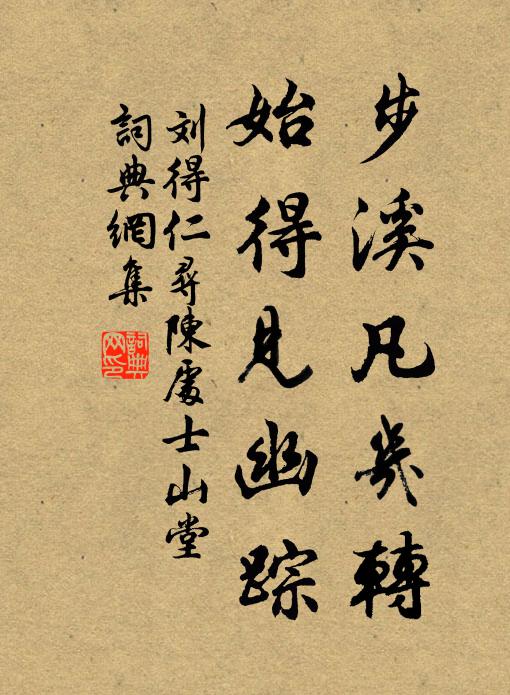 步溪凡幾轉
始得見幽踪
刘得仁尋陳處士山堂
詞典網集
詞典网印